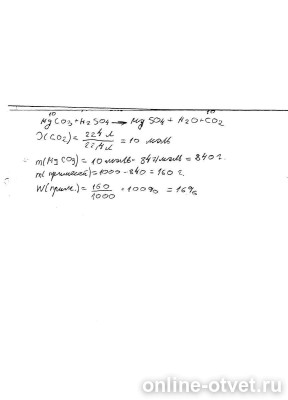 10 10
MgCO3+H2SO4→MgSO4+H2O+CO2
V(CO2)=224 л/22,4 л=10 моль
m(MgCO3)=10 моль·84г/моль=840 г.
m(примесей)=1000-840=160 г.
W(прим.)=160/1000·100%=16%
online-otvet.ru